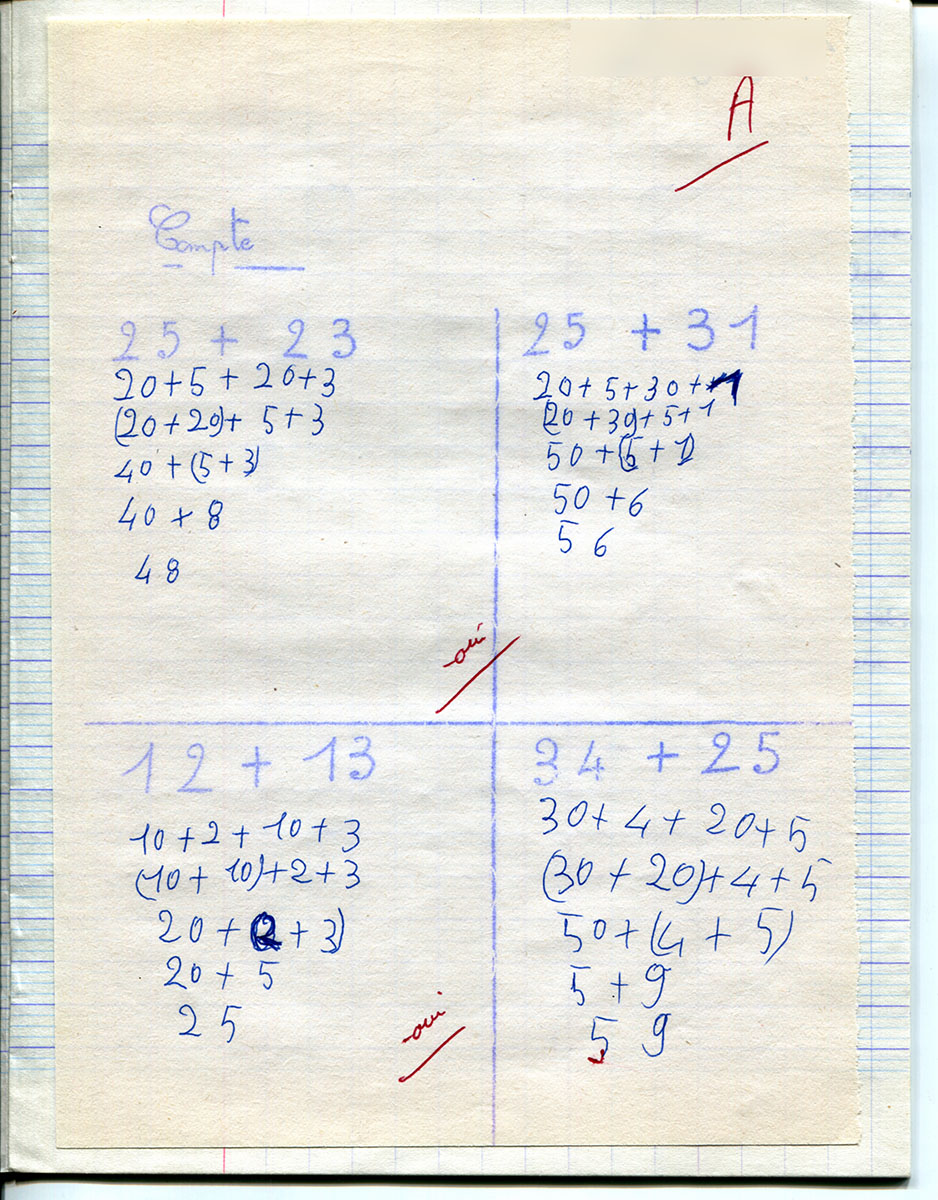 A
Compte
25 + 23
20+5+20+3
(20+20)+ 5+3
40+(5+3)
40+8
48
25 + 31
20+5+30+1
(20+30)+5+1
50+(5+1)
50+6
56
oui
12 + 13
10+2+10+3
(10+10)+2+3
20+(2+3)
20+5
25
oui
34 + 25
30+4+20+5
(30+20)+4+5
50+(4+5)
5+9
59